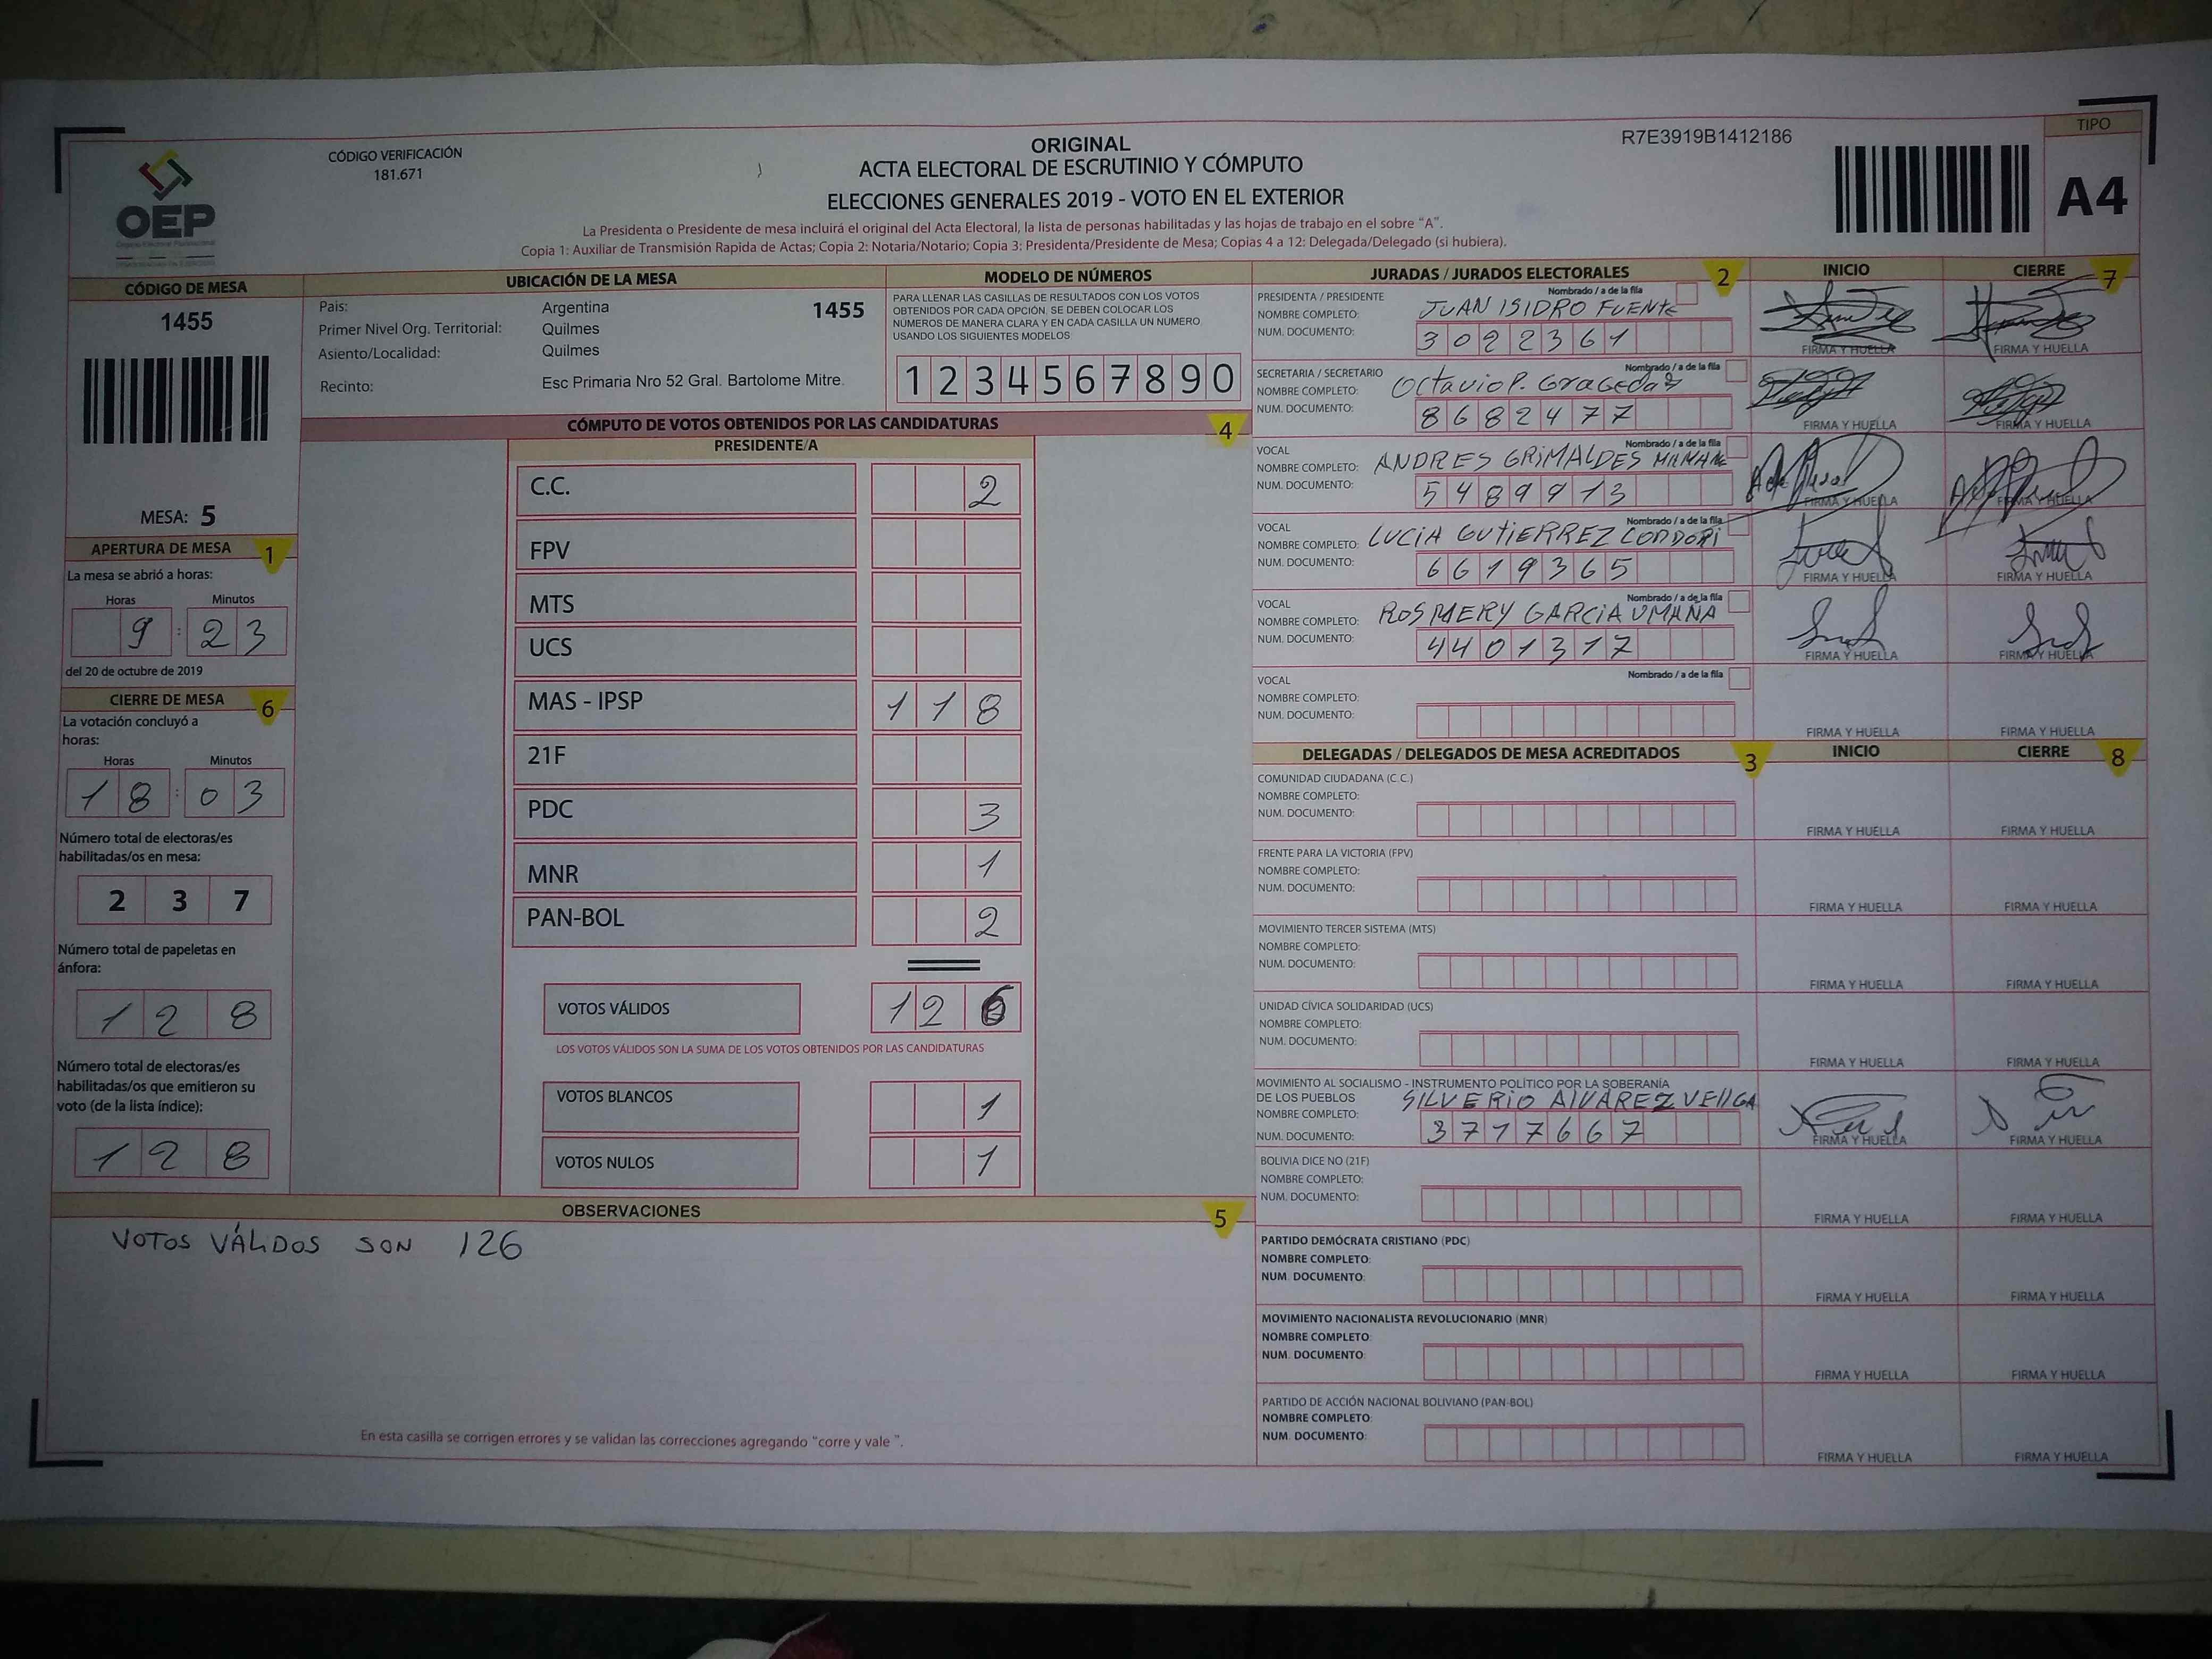 CÓDIGO VERIFICACIÓN
181.671
ORIGINAL
ACTA ELECTORAL DE ESCRUTINIO Y CÓMPUTO
ELECCIONES GENERALES 2019 - VOTO EN EL EXTERIOR
R7E3919B1412186
TIPO
A4
OEP
La Presidenta o Presidente de mesa incluirá el original del Acta Electoral, la lista de personas habilitadas y las hojas de trabajo en el sobre "A".
Copia 1: Auxiliar de Transmisión Rapida de Actas; Copia 2: Notaria/Notario; Copia 3: Presidenta/Presidente de Mesa; Copias 4 a 12: Delegada/Delegado (si hubiera).
CÓDIGO DE MESA
1455
MESA: 5
APERTURA DE MESA 1
La mesa se abrió a horas:
Horas Minutos
9 : 23
del 20 de octubre de 2019
CIERRE DE MESA 6
La votación concluyó a
horas:
Horas Minutos
18 : 03
Número total de electoras/es
habilitadas/os en mesa:
2 3 7
Número total de papeletas en
ánfora:
1 2 8
Número total de electoras/es
habilitadas/os que emitieron su
voto (de la lista índice):
1 2 8
UBICACIÓN DE LA MESA
País: Argentina 1455
Primer Nivel Org. Territorial: Quilmes
Asiento/Localidad: Quilmes
Recinto: Esc Primaria Nro 52 Gral. Bartolome Mitre.
MODELO DE NÚMEROS
PARA LLENAR LAS CASILLAS DE RESULTADOS CON LOS VOTOS
OBTENIDOS POR CADA OPCIÓN, SE DEBEN COLOCAR LOS
NÚMEROS DE MANERA CLARA Y EN CADA CASILLA UN NUMERO
USANDO LOS SIGUIENTES MODELOS
1 2 3 4 5 6 7 8 9 0
CÓMPUTO DE VOTOS OBTENIDOS POR LAS CANDIDATURAS 4
PRESIDENTE/A
C.C. 2
FPV
MTS
UCS
MAS - IPSP 1 1 8
21F
PDC 3
MNR 1
PAN-BOL 2
VOTOS VÁLIDOS 1 2 6
LOS VOTOS VÁLIDOS SON LA SUMA DE LOS VOTOS OBTENIDOS POR LAS CANDIDATURAS
VOTOS BLANCOS 1
VOTOS NULOS 1
OBSERVACIONES 5
VOTOS VÁLIDOS SON 126
En esta casilla se corrigen errores y se validan las correcciones agregando "corre y vale ".
JURADAS / JURADOS ELECTORALES 2 INICIO CIERRE 7
PRESIDENTA / PRESIDENTE Nombrado / a de la fila
NOMBRE COMPLETO: JUAN ISIDRO FUENTE
NUM. DOCUMENTO: 3022361
FIRMA Y HUELLA FIRMA Y HUELLA
SECRETARIA / SECRETARIO Nombrado / a de la fila
NOMBRE COMPLETO: Octavio P. Gragedaz
NUM. DOCUMENTO: 8682477
FIRMA Y HUELLA FIRMA Y HUELLA
VOCAL Nombrado / a de la fila
NOMBRE COMPLETO: ANDRES GRIMALDES
NUM. DOCUMENTO: 5489913
FIRMA Y HUELLA FIRMA Y HUELLA
VOCAL Nombrado / a de la fila
NOMBRE COMPLETO: LUCIA GUTIERREZ CONDORI
NUM. DOCUMENTO: 6619365
FIRMA Y HUELLA FIRMA Y HUELLA
VOCAL Nombrado / a de la fila
NOMBRE COMPLETO: ROSMERY GARCIA UMAÑA
NUM. DOCUMENTO: 4401317
FIRMA Y HUELLA FIRMA Y HUELLA
VOCAL Nombrado / a de la fila
NOMBRE COMPLETO:
NUM. DOCUMENTO:
FIRMA Y HUELLA FIRMA Y HUELLA
DELEGADAS / DELEGADOS DE MESA ACREDITADOS 3 INICIO CIERRE 8
COMUNIDAD CIUDADANA (C.C.)
NOMBRE COMPLETO:
NUM. DOCUMENTO:
FIRMA Y HUELLA FIRMA Y HUELLA
FRENTE PARA LA VICTORIA (FPV)
NOMBRE COMPLETO:
NUM. DOCUMENTO:
FIRMA Y HUELLA FIRMA Y HUELLA
MOVIMIENTO TERCER SISTEMA (MTS)
NOMBRE COMPLETO:
NUM. DOCUMENTO:
FIRMA Y HUELLA FIRMA Y HUELLA
UNIDAD CÍVICA SOLIDARIDAD (UCS)
NOMBRE COMPLETO:
NUM. DOCUMENTO:
FIRMA Y HUELLA FIRMA Y HUELLA
MOVIMIENTO AL SOCIALISMO - INSTRUMENTO POLÍTICO POR LA SOBERANÍA
DE LOS PUEBLOS
NOMBRE COMPLETO: SILVERIO ALVAREZ
NUM. DOCUMENTO: 3717667
FIRMA Y HUELLA FIRMA Y HUELLA
BOLIVIA DICE NO (21F)
NOMBRE COMPLETO:
NUM. DOCUMENTO:
FIRMA Y HUELLA FIRMA Y HUELLA
PARTIDO DEMÓCRATA CRISTIANO (PDC)
NOMBRE COMPLETO:
NUM. DOCUMENTO:
FIRMA Y HUELLA FIRMA Y HUELLA
MOVIMIENTO NACIONALISTA REVOLUCIONARIO (MNR)
NOMBRE COMPLETO:
NUM. DOCUMENTO:
FIRMA Y HUELLA FIRMA Y HUELLA
PARTIDO DE ACCIÓN NACIONAL BOLIVIANO (PAN-BOL)
NOMBRE COMPLETO:
NUM. DOCUMENTO:
FIRMA Y HUELLA FIRMA Y HUELLA